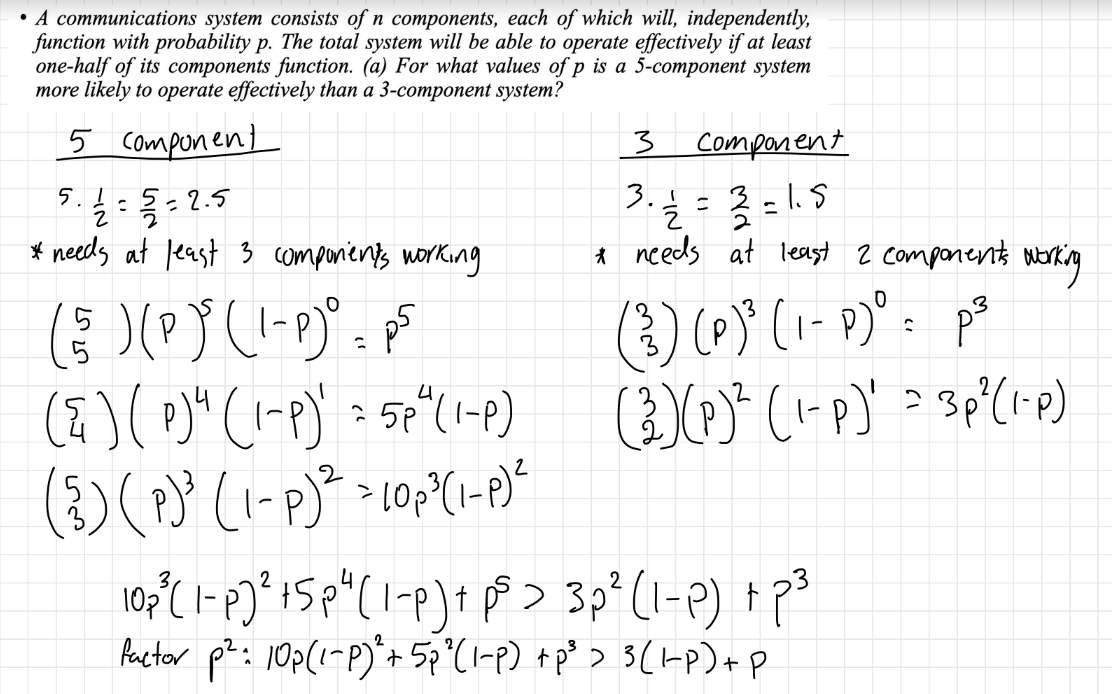 • A communications system consists of n components, each of which will, independently,
function with probability p. The total system will be able to operate effectively if at least
one-half of its components function. (a) For what values of p is a 5-component system
more likely to operate effectively than a 3-component system?
5 component
5 · 1/2 = 5/2 = 2.5
* needs at least 3 components working
(5 5)(p)^5 (1-p)^0 = p^5
(5 4)(p)^4 (1-p)^1 = 5p^4(1-p)
(5 3)(p)^3 (1-p)^2 = 10p^3(1-p)^2
3 component
3 · 1/2 = 3/2 = 1.5
* needs at least 2 components working
(3 3)(p)^3 (1-p)^0 = p^3
(3 2)(p)^2 (1-p)^1 = 3p^2(1-p)
10p^3(1-p)^2 + 5p^4(1-p) + p^5 > 3p^2(1-p) + p^3
factor p^2: 10p(1-p)^2 + 5p^2(1-p) + p^3 > 3(1-p) + p